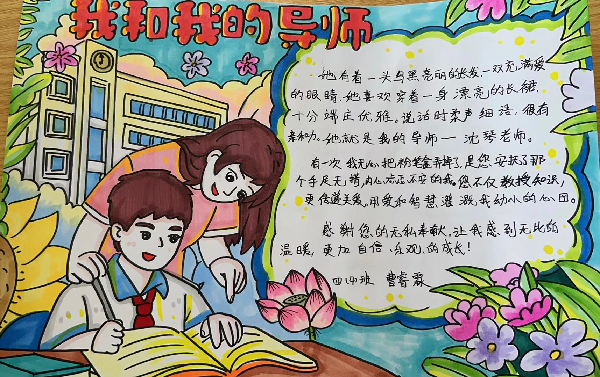 我和我的导师
她有着一头乌黑亮丽的长发,一双充满爱
的眼睛,她喜欢穿着一身漂亮的长裙
十分端庄优雅。说话时柔声细语,很有
亲和力。她就是我的导师——沈琴老师。
有一次我无心把粉笔盒弄碎了,是您安抚了那
个手足无措,内心忐忑不安的我。您不仅教授知识,
更传递美爱,用爱和智慧灌溉我幼小的心田。
感谢您的无私奉献,让我感到无比的
温暖,更加自信、乐观的成长!
四四班 曹睿霖